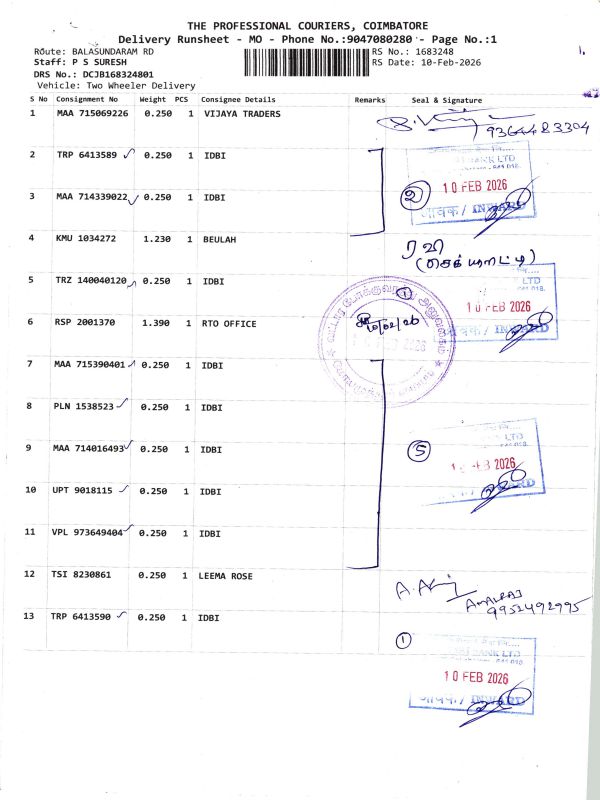 THE PROFESSIONAL COURIERS, COIMBATORE
Delivery Runsheet - MO - Phone No.:9047080280 - Page No.:1
Route: BALASUNDARAM RD
RS No.: 1683248
Staff: P S SURESH
RS Date: 10-Feb-2026
DRS No.: DCJB168324801
Vehicle: Two Wheeler Delivery
1.
S No Consignment No Weight PCS Consignee Details Remarks Seal & Signature
1 MAA 715069226 0.250 1 VIJAYA TRADERS
9364483304
2 TRP 6413589 ✓ 0.250 1 IDBI
BANK LTD
10 FEB 2026
3 MAA 714339022 ✓ 0.250 1 IDBI
2
आवक / INWARD
4 KMU 1034272 1.230 1 BEULAH
ரவி
(செக்யூரிட்டி)
5 TRZ 140040120 ✓ 0.250 1 IDBI
1
10 FEB 2026
6 RSP 2001370 1.390 1 RTO OFFICE
10/02/26
வட்டார போக்குவரத்து அலுவலகம்
7 MAA 715390401 ✓ 0.250 1 IDBI
8 PLN 1538523 ✓ 0.250 1 IDBI
9 MAA 714016493 ✓ 0.250 1 IDBI
5
LTD
10 UPT 9018115 ✓ 0.250 1 IDBI
11 VPL 973649404 ✓ 0.250 1 IDBI
12 TSI 8230861 0.250 1 LEEMA ROSE
9952492995
13 TRP 6413590 ✓ 0.250 1 IDBI
1
BANK LTD
10 FEB 2026
आवक / INWARD